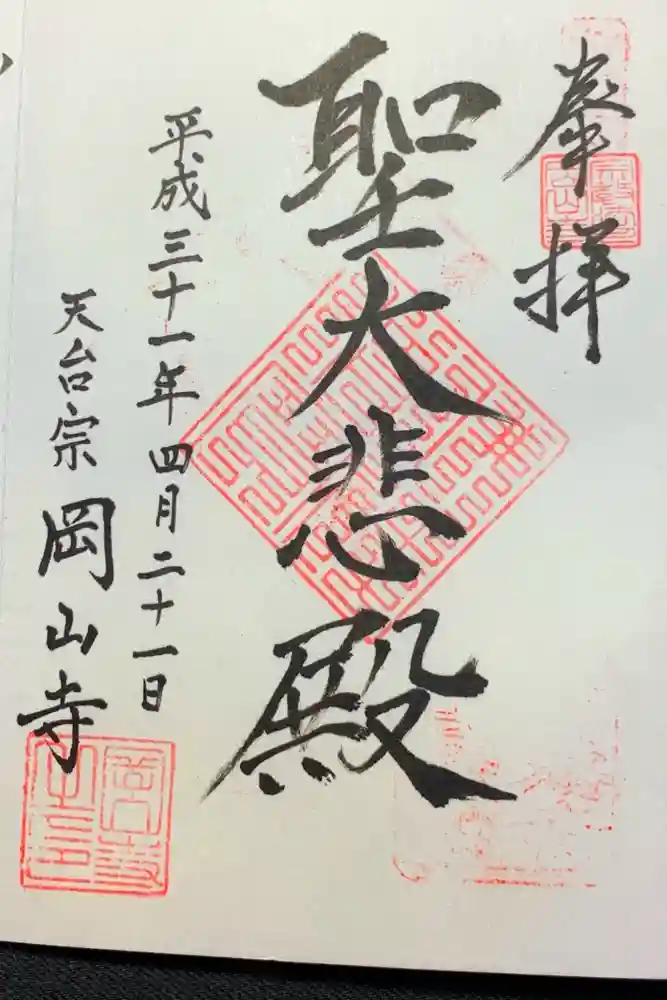 奉拝
聖大悲殿
平成三十一年四月二十一日
天台宗 岡山寺